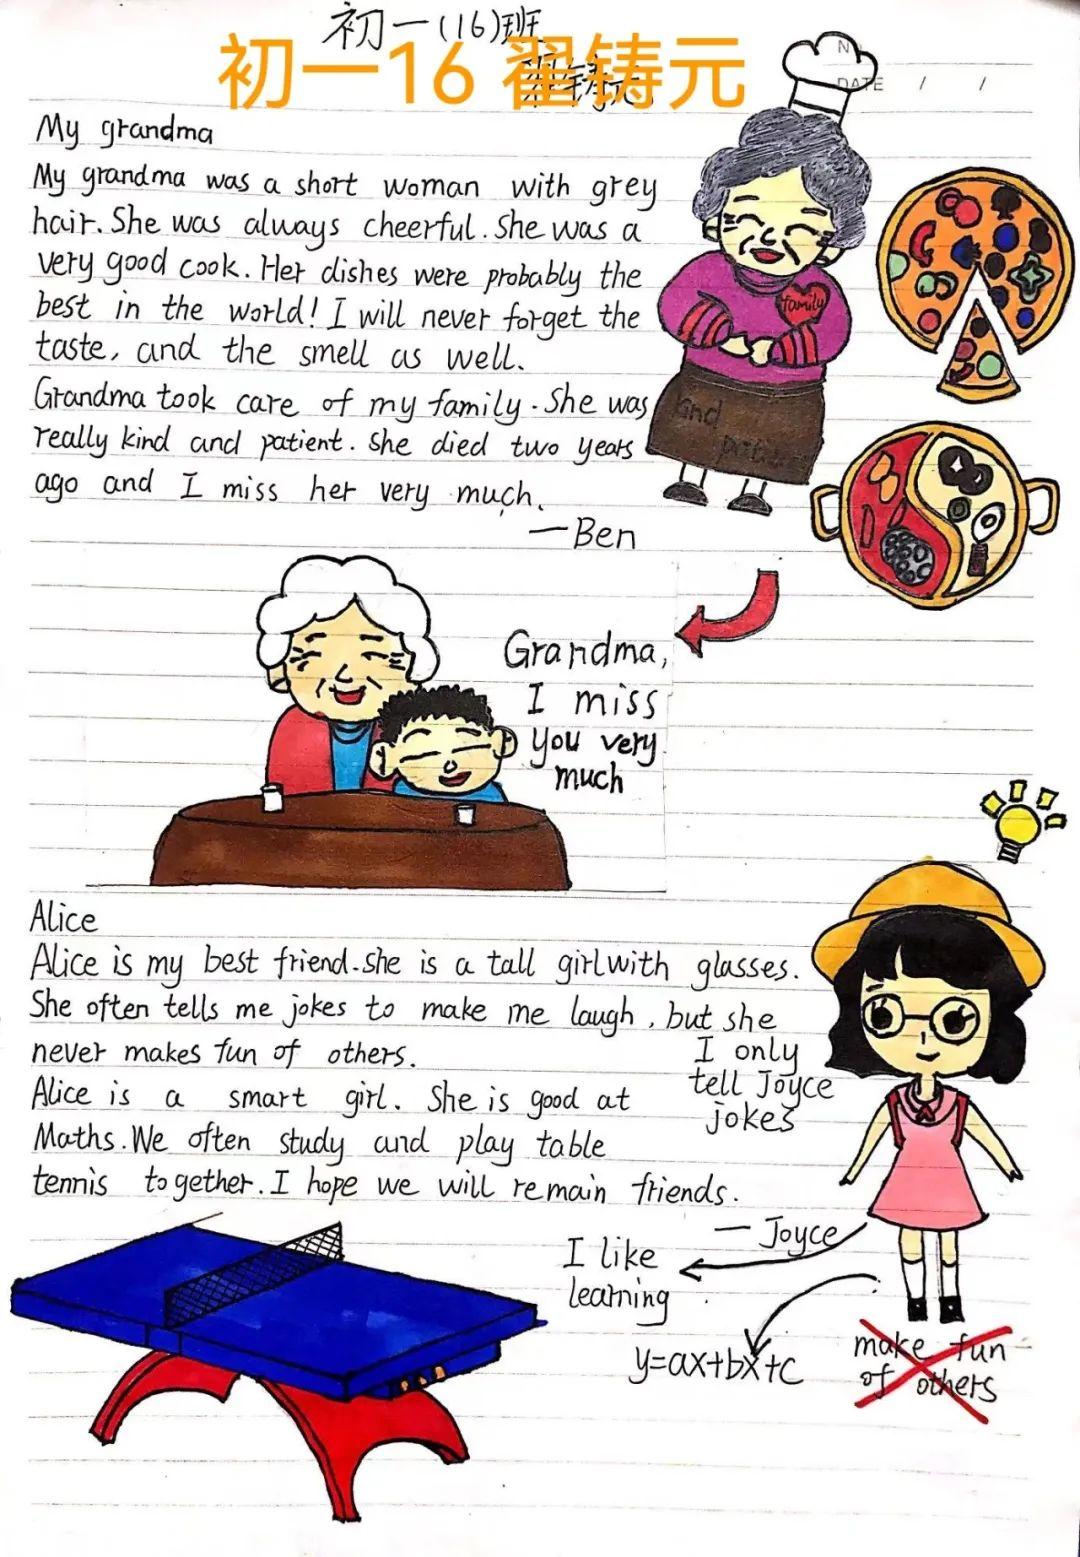 初一(16)班
初一16 翟铸元
翟铸元
DATE / /
My grandma
My grandma was a short woman with grey
hair. She was always cheerful. She was a
very good cook. Her dishes were probably the
best in the world! I will never forget the
taste, and the smell as well.
Grandma took care of my family. She was
really kind and patient. She died two years
ago and I miss her very much.
—Ben
family
kind
Grandma,
I miss
you very
much
Alice
Alice is my best friend. she is a tall girl with glasses.
She often tells me jokes to make me laugh, but she
never makes fun of others.
Alice is a smart girl. She is good at
Maths. We often study and play table
tennis together. I hope we will remain friends.
— Joyce
I only
tell Joyce
jokes
I like
learning
y=ax+bx+c
make fun
of others